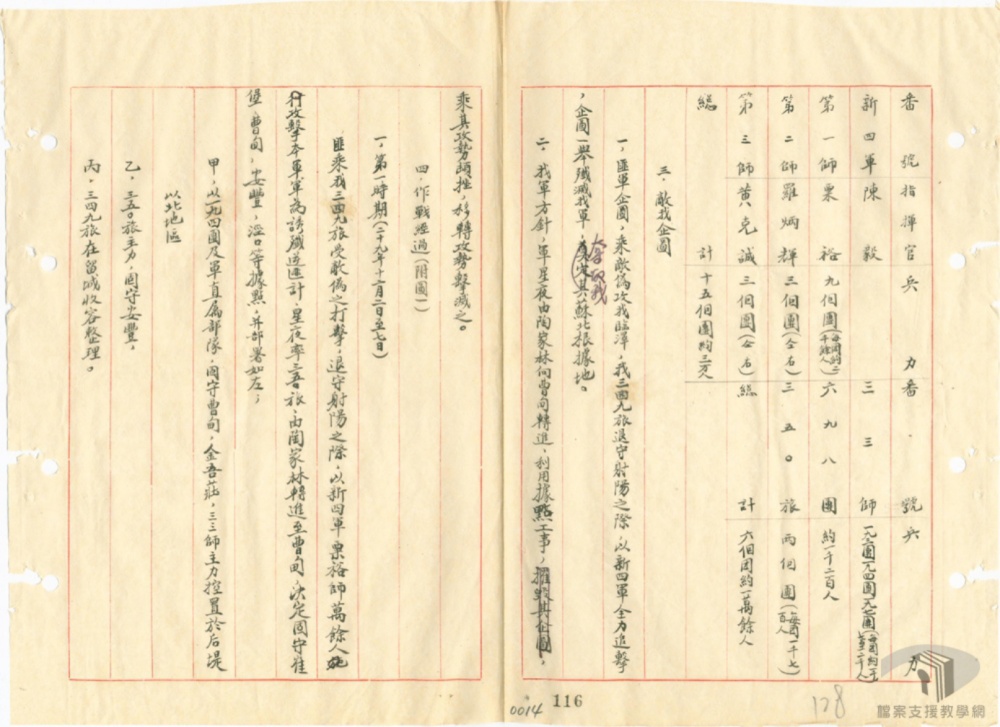 番號指揮官兵力番號兵力
新四軍陳毅 三三師
第一師粟裕九個團(每團約二千餘人) 六九八團約一千二百人
第二師羅炳輝三個團(仝右) 三五〇旅兩個團(每團一千七百人)
第三師黃克誠三個團(仝右) 總計六個團約一萬餘人
總計十五個團約三萬人
三、敵我企圖
一、匪軍企圖,乘敵偽攻我臨澤,我三四九旅退守射陽之際,以新四軍全力追擊
,企圖一舉殲滅我軍,其蘇北根據地。
二、我軍方針,軍星夜由陶家林向曹甸轉進,利用據點工事,摧毀其企圖,
乘其攻勢頓挫,移轉攻勢擊滅之。
四、作戰經過(附圖一)
一、第一時期(二十九年十一月一日至七日)
匪乘我三四九旅受敵偽之打擊,退守射陽之際,以新四軍粟裕師萬餘人
行攻擊本軍軍為誘殲逆匪計,星夜率三五〇旅,由陶家林轉進至曹甸,決定固守
堡、曹甸,安豐,涇口等據點,并部署如左;
甲、以一九四團及軍直屬部隊,固守曹甸,金吾莊,三三師主力控置於后堤
以北地區
乙、三五〇旅主力,固守安豐,
丙、三四九旅在留城收容整理。
0014
116
128
檔案支援教學網